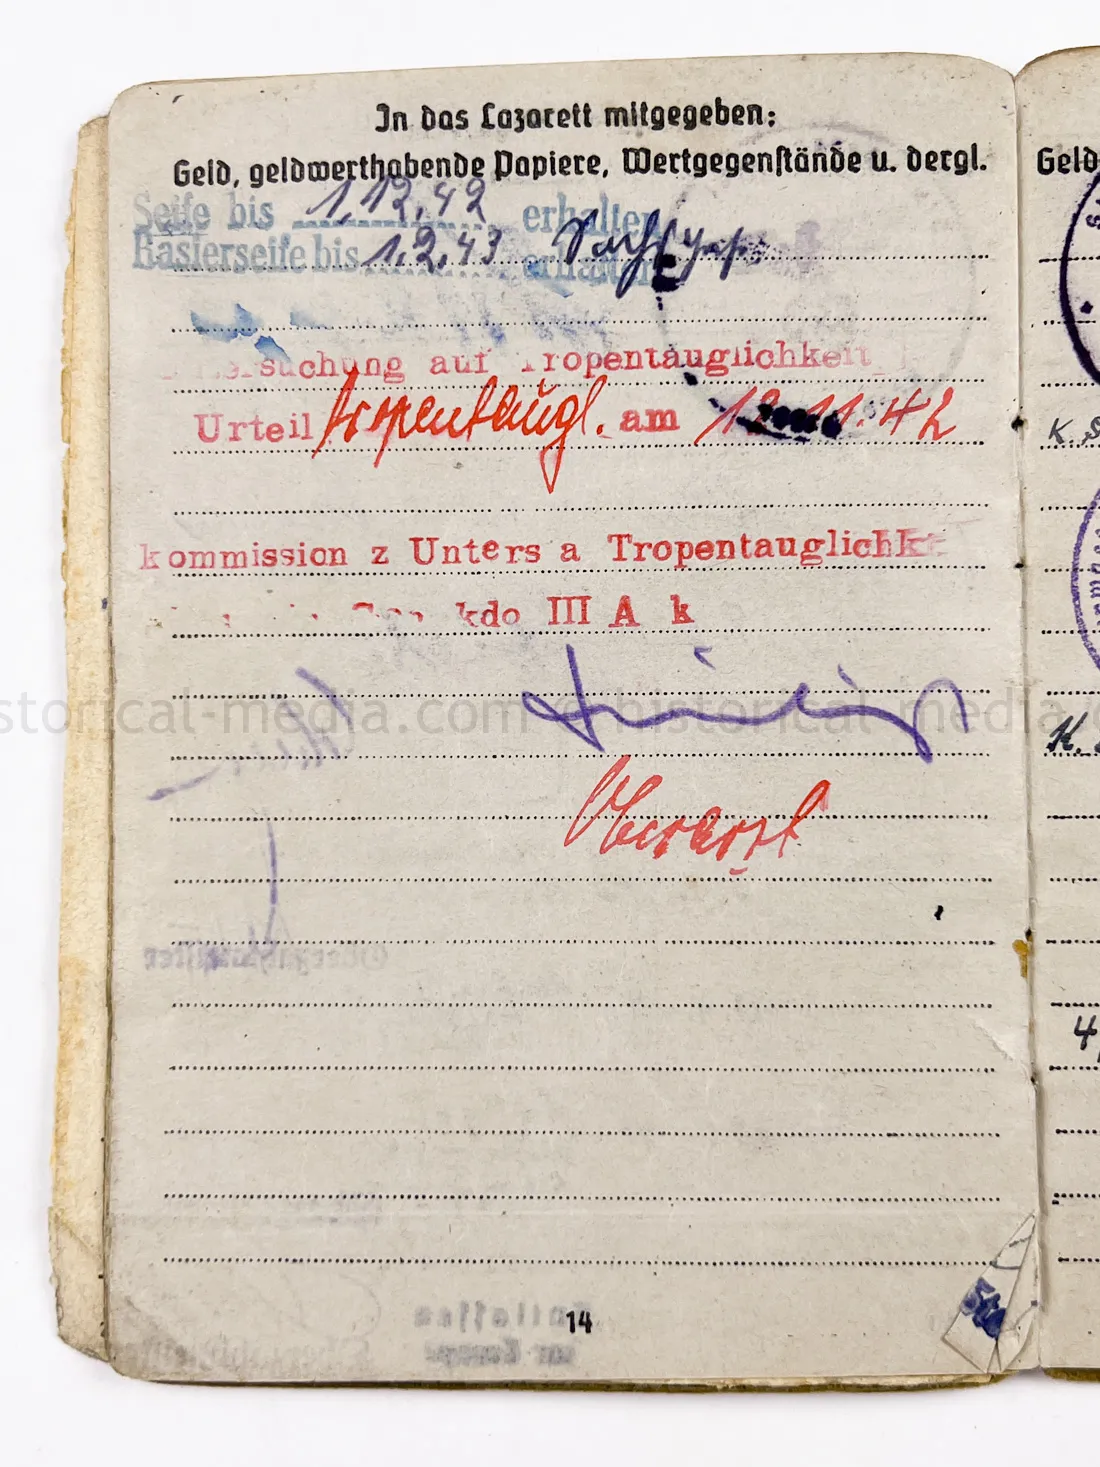 In das Lazarett mitgegeben:
Geld, geldwerthabende Papiere, Wertgegenstände u. dergl.
Seife bis 1.12.42 erhalten
Rasierseife bis 1.2.43 erhalten
suchung auf Tropentauglichkeit
Urteil tropentaugl. am 11.42
kommission z Unters a Tropentauglichk
kdo III A k
Oberarzt
14
Geld
K.
K.
4
historical-media.com
historical-media.com